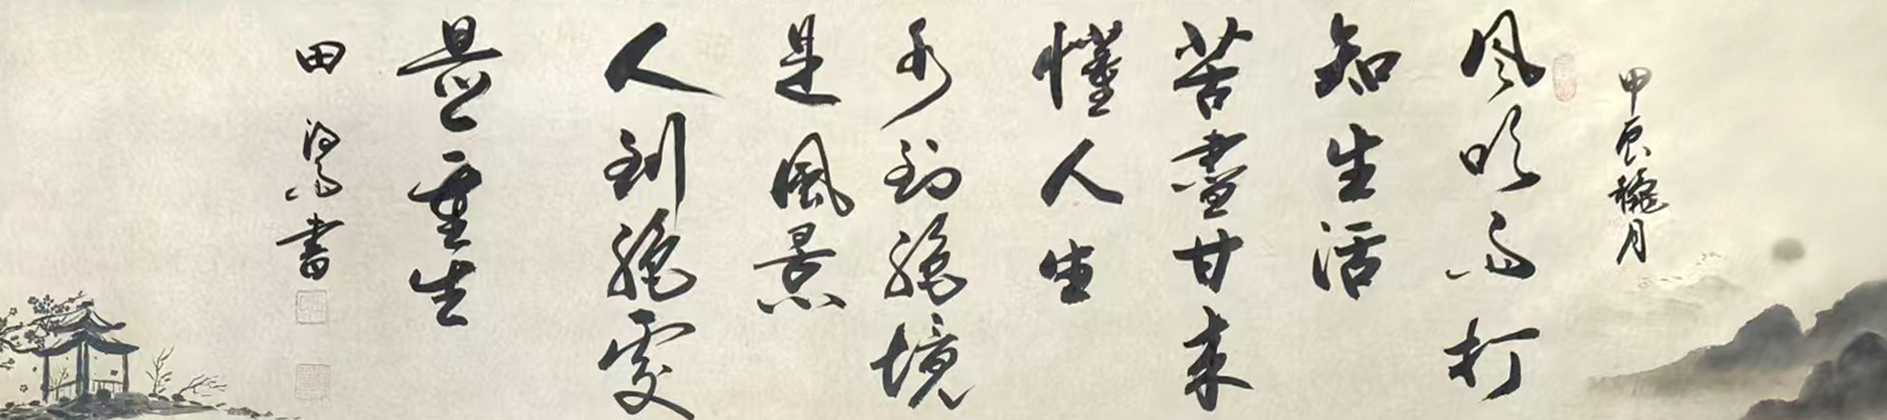 甲辰穐月
风吹雨打
知生活
苦盡甘来
懂人生
水到絶境
是風景
人到絶處
是重生
田書